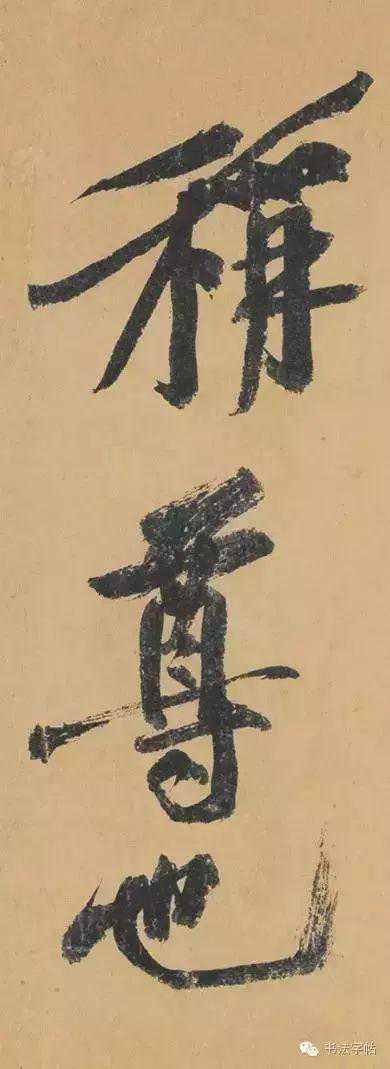 稱尊也
书法字帖